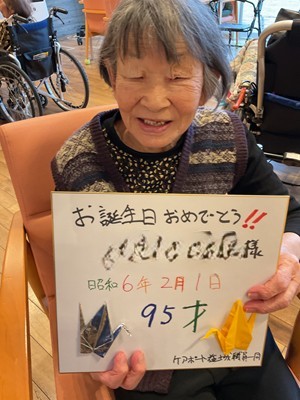 お誕生日おめでとう!!
様
昭和6年2月1日
95才